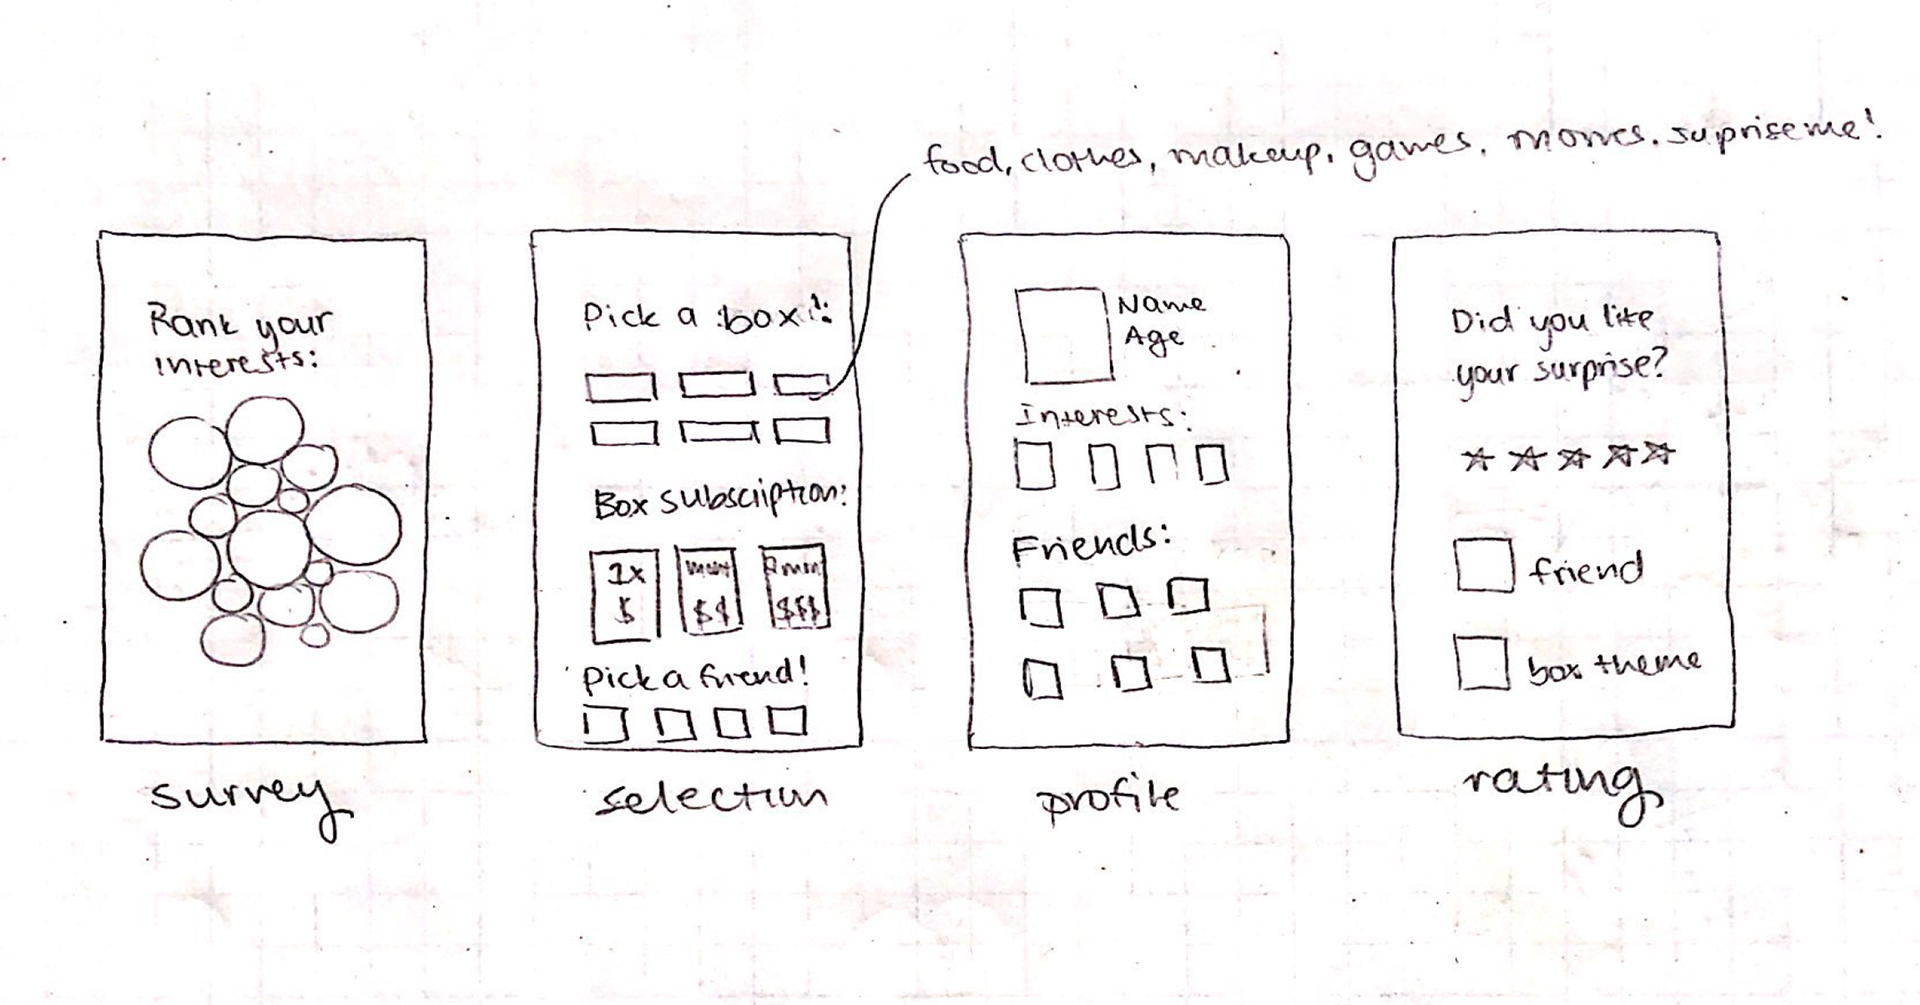 food, clothes, makeup, games, movies. supriseme!
Rank your
interests:
survey
Pick a box!
Box subscription:
1x
$
$$
$$$
Pick a friend!
selection
Name
Age
Interests:
Friends:
profile
Did you like
your surprise?
friend
box theme
rating